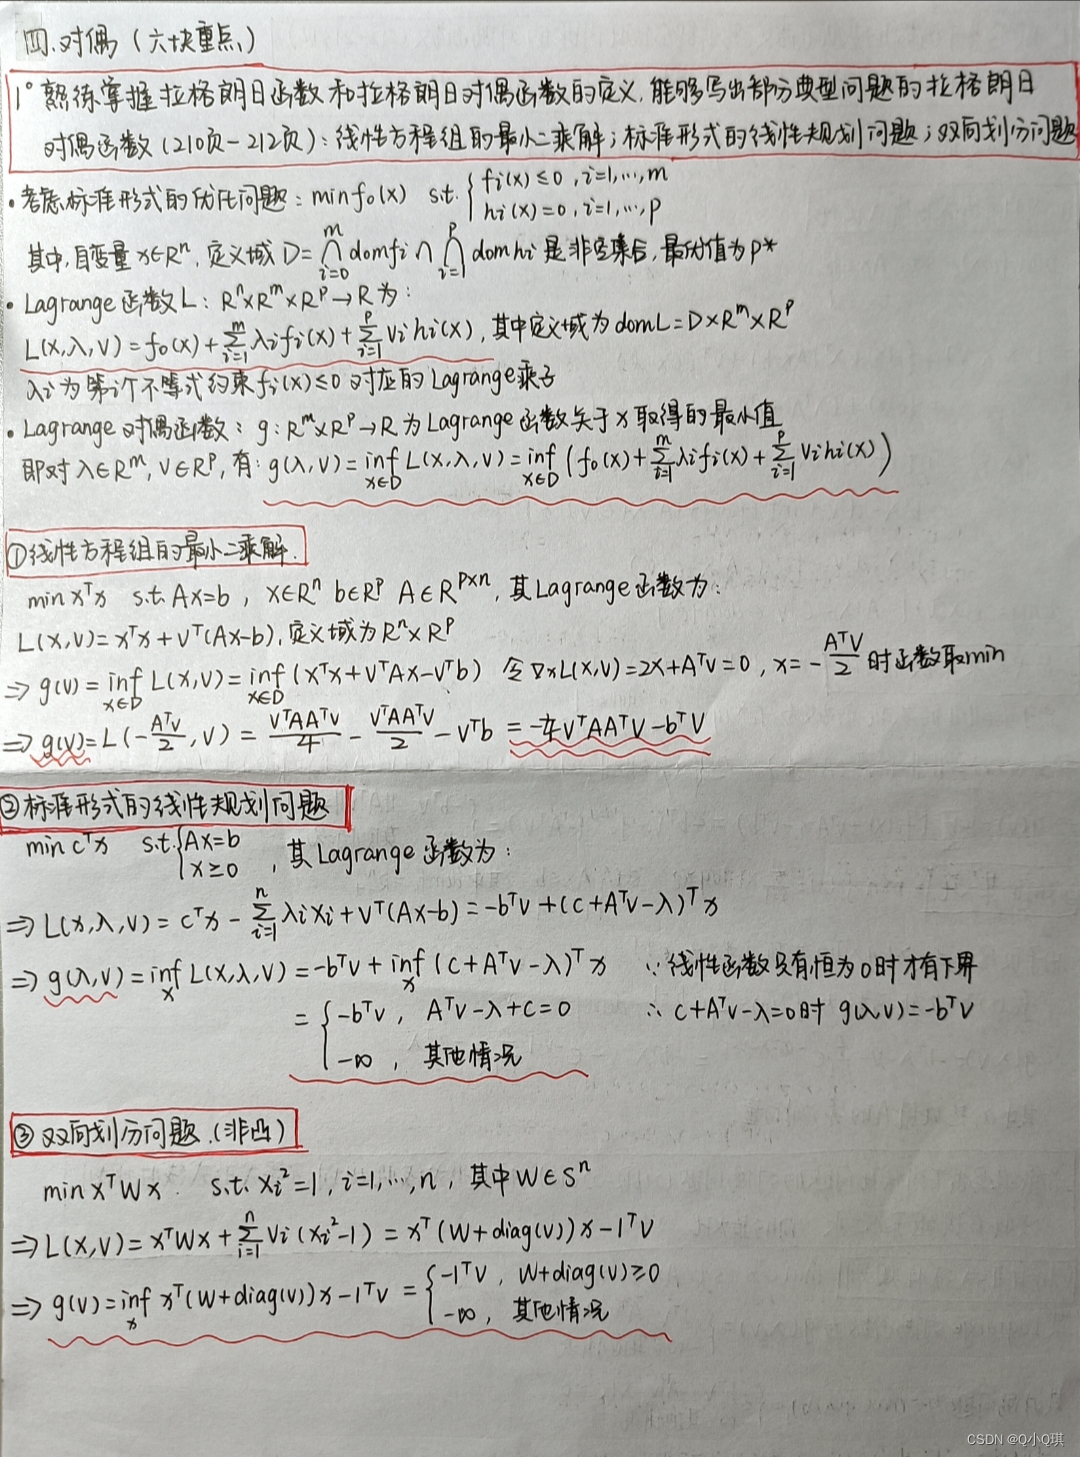 四.对偶（六块重点）
1° 熟练掌握拉格朗日函数和拉格朗日对偶函数的定义,能够写出部分典型问题的拉格朗日
对偶函数(210页-212页):线性方程组的最小二乘解;标准形式的线性规划问题;双向划分问题
·考虑标准形式的优化问题: min f₀(x) s.t. { fi(x)≤0, i=1,…,m
hi(x)=0, i=1,…,p
其中,自变量 x∈Rⁿ, 定义域 D=⋂_{i=0}^{m} dom fi ∩ ⋂_{i=1}^{p} dom hi 是非空集合,最优值为p*
·Lagrange函数 L: Rⁿ×Rᵐ×Rᵖ→R 为:
L(x,λ,v)=f₀(x)+∑_{i=1}^{m} λifi(x)+∑_{i=1}^{p} vihi(x), 其中定义域为domL=D×Rᵐ×Rᵖ
λi为第i个不等式约束fi(x)≤0对应的Lagrange乘子
·Lagrange对偶函数: g: Rᵐ×Rᵖ→R 为Lagrange函数关于x取得的最小值
即对λ∈Rᵐ, v∈Rᵖ, 有: g(λ,v)=inf_{x∈D} L(x,λ,v)=inf_{x∈D} (f₀(x)+∑_{i=1}^{m} λifi(x)+∑_{i=1}^{p} vihi(x))
①线性方程组的最小二乘解.
min xᵀx s.t. Ax=b, x∈Rⁿ b∈Rᵖ A∈Rᵖˣⁿ, 其Lagrange函数为:
L(x,v)=xᵀx+vᵀ(Ax-b), 定义域为Rⁿ×Rᵖ
⇒ g(v)=inf_{x∈D} L(x,v)=inf_{x∈D} (xᵀx+vᵀAx-vᵀb) 令∇xL(x,v)=2x+Aᵀv=0, x=-Aᵀv/2 时函数取min
⇒ g(v)=L(-Aᵀv/2, v)=vᵀAAᵀv/4 - vᵀAAᵀv/2 - vᵀb = -¼vᵀAAᵀv-bᵀv
②标准形式的线性规划问题
min cᵀx s.t. { Ax=b
x≥0 , 其Lagrange函数为:
⇒ L(x,λ,v)=cᵀx-∑_{i=1}^{n} λixi+vᵀ(Ax-b)=-bᵀv+(c+Aᵀv-λ)ᵀx
⇒ g(λ,v)=inf_x L(x,λ,v)=-bᵀv+inf_x (c+Aᵀv-λ)ᵀx ∵线性函数只有恒为0时才有下界
= { -bᵀv, Aᵀv-λ+c=0 ∴ c+Aᵀv-λ=0时 g(λ,v)=-bᵀv
-∞, 其他情况
③双向划分问题.(非凸)
min xᵀWx. s.t. xi²=1, i=1,…,n, 其中W∈Sⁿ
⇒ L(x,v)=xᵀWx+∑_{i=1}^{n} vi(xi²-1)=xᵀ(W+diag(v))x-1ᵀv
⇒ g(v)=inf_x xᵀ(W+diag(v))x-1ᵀv = { -1ᵀv, W+diag(v)≥0
-∞, 其他情况
CSDN @Q小Q琪